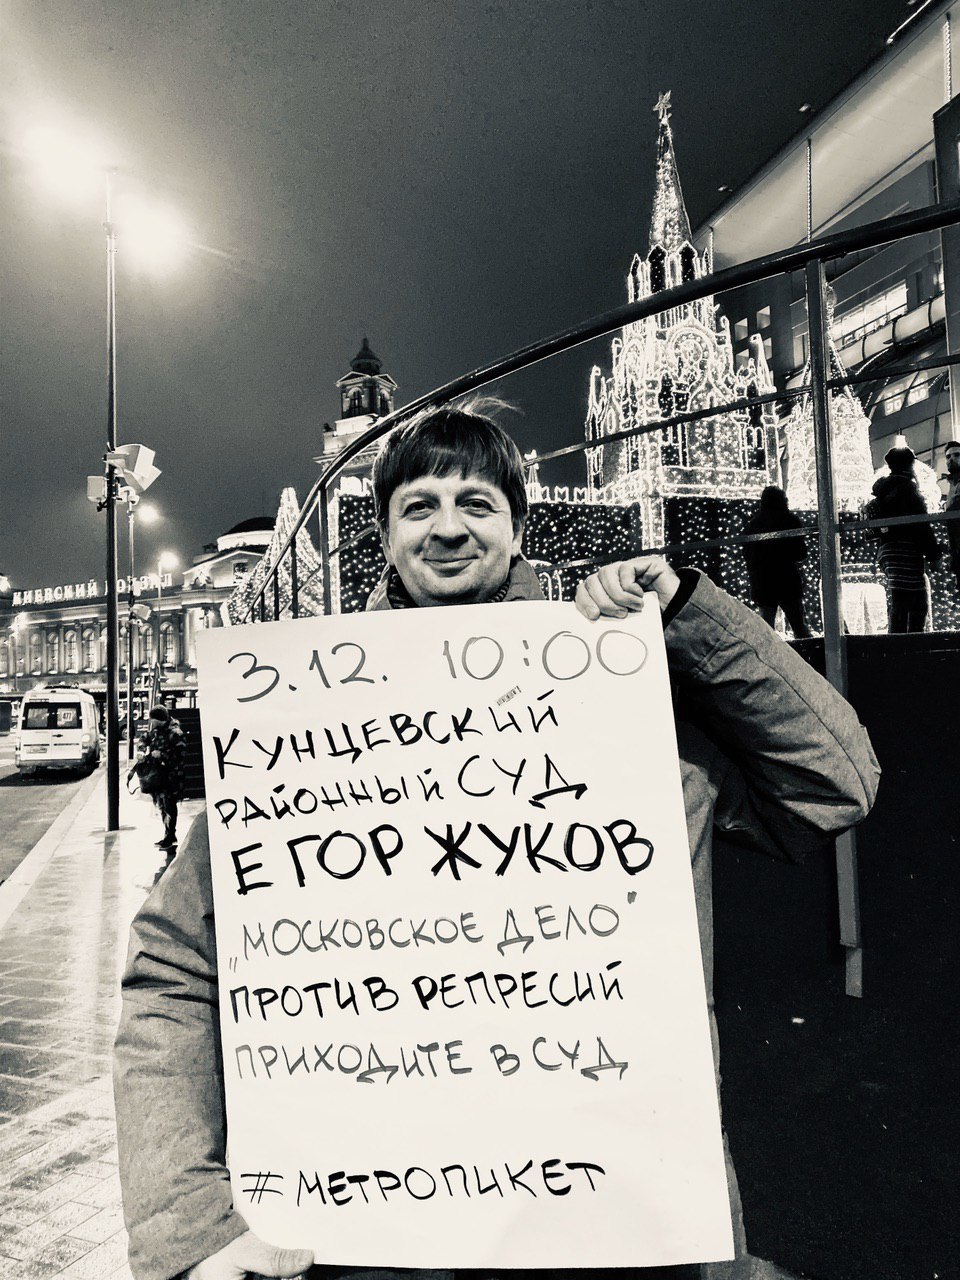 КИЕВСКИЙ ВОКЗАЛ
3.12. 10:00
КУНЦЕВСКИЙ
РАЙОННЫЙ СУД
ЕГОР ЖУКОВ
„МОСКОВСКОЕ ДЕЛО"
ПРОТИВ РЕПРЕСИЙ
ПРИХОДИТЕ В СУД
#МЕТРОПИКЕТ